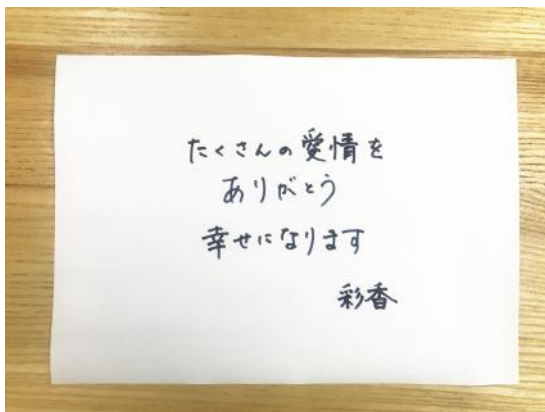 たくさんの愛情を
ありがとう
幸せになります
彩香